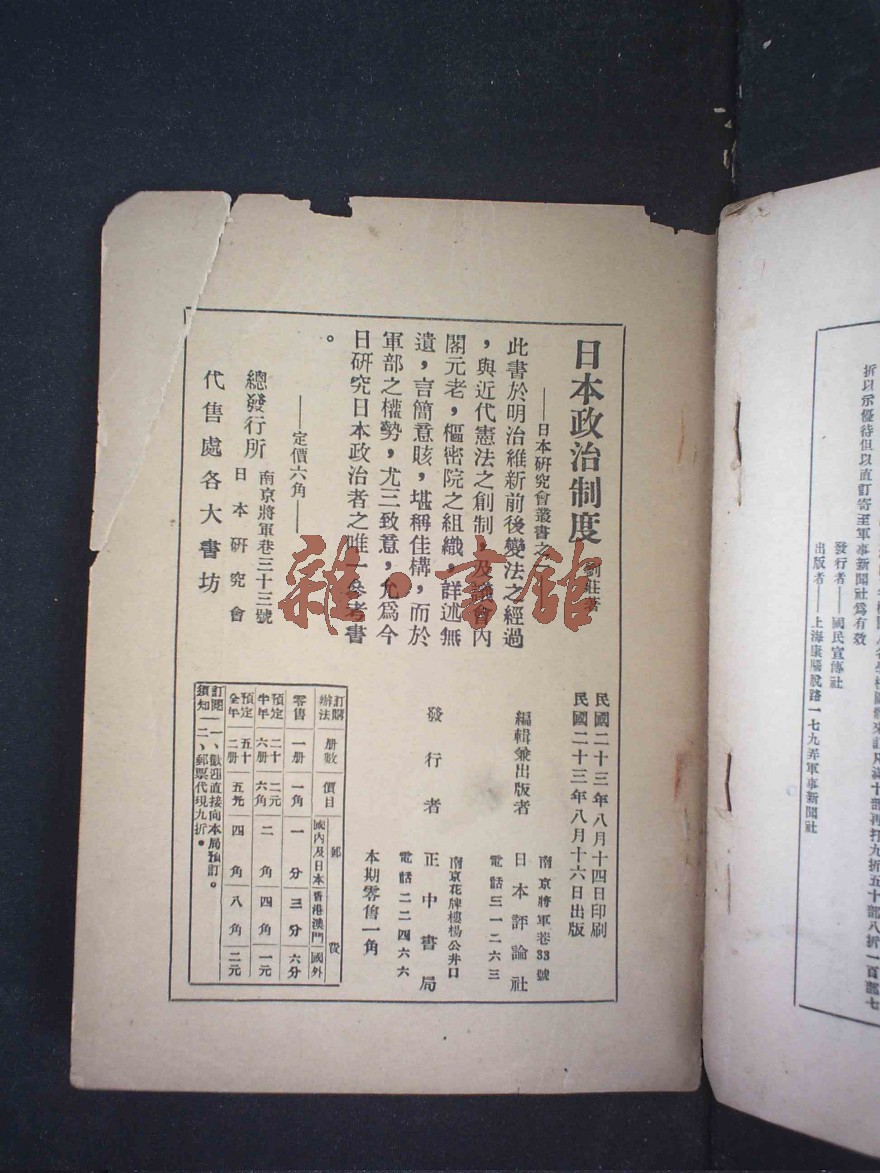 折以示優待但以直訂寄至軍事新聞社爲有效
發行者——國民宣傳社
出版者——上海康腦脫路一七九弄軍事新聞社
日本政治制度
劉莊著
——日本研究會叢書之
此書於明治維新前後變法之經過
，與近代憲法之創制，及議會內
閣元老，樞密院之組織，詳述無
遺，言簡意賅，堪稱佳構，而於
軍部之權勢，尤三致意，允爲今
日研究日本政治者之唯一參考書
。
——定價六角——
總發行所
南京將軍巷三十三號
日本研究會
代售處各大書坊
民國二十三年八月十四日印刷
民國二十三年八月十六日出版
編輯兼出版者
南京將軍巷33號
日本評論社
電話三一二六三
發行者
南京花牌樓楊公井口
正中書局
電話二二四六六
本期零售一角
訂購辦法 册數 價目 郵費 國內及日本 香港澳門 國外
零售 一册 一角 一分 三分 六分
預定半年 二十六册 二元六角 二角 四角 一元
預定全年 五十二册 五元 四角 八角 二元
訂閱須知
一、歡迎直接向本局預訂。
二、郵票代現九折。
雜·書館